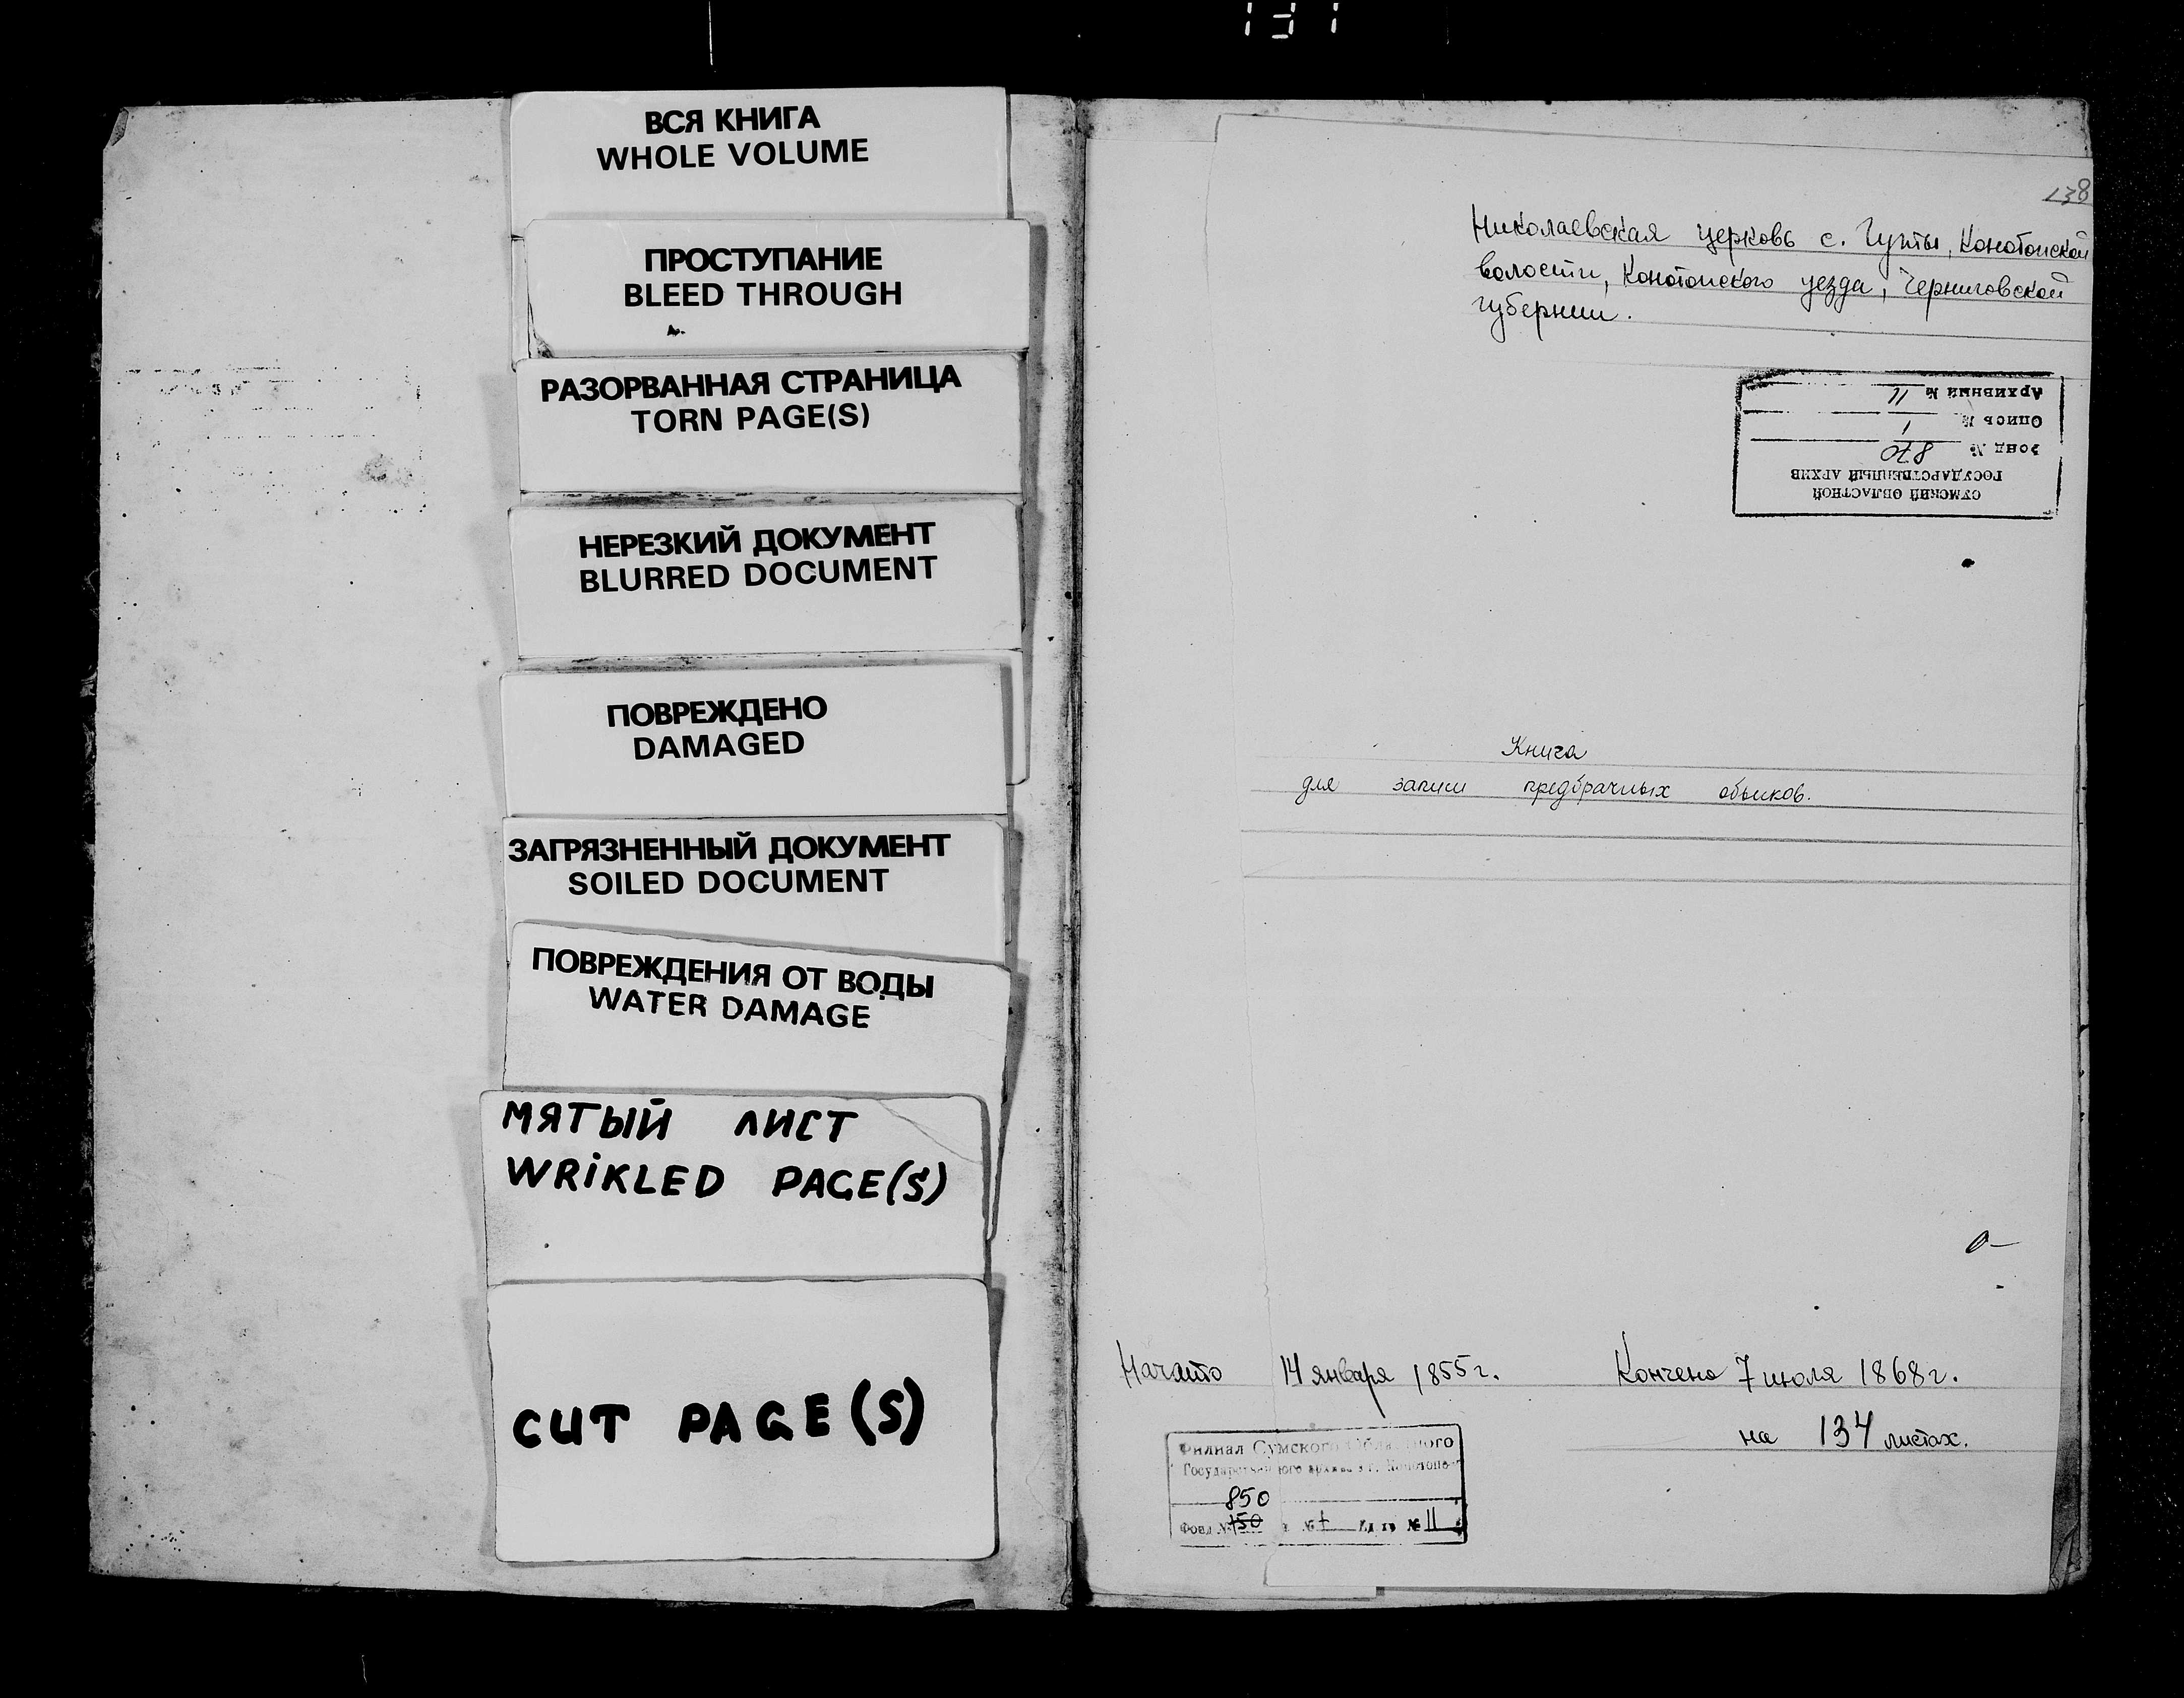 131
ВСЯ КНИГА
WHOLE VOLUME
ПРОСТУПАНИЕ
BLEED THROUGH
РАЗОРВАННАЯ СТРАНИЦА
TORN PAGE(S)
НЕРЕЗКИЙ ДОКУМЕНТ
BLURRED DOCUMENT
ПОВРЕЖДЕНО
DAMAGED
ЗАГРЯЗНЕННЫЙ ДОКУМЕНТ
SOILED DOCUMENT
ПОВРЕЖДЕНИЯ ОТ ВОДЫ
WATER DAMAGE
МЯТЫЙ ЛИСТ
WRIKLED PAGE(S)
CUT PAGE(S)
138
Николаевская церковь с. Гуты, Конотопской
волости, Конотопского уезда, Черниговской
губернии.
СУМСКИЙ ОБЛАСТНОЙ
ГОСУДАРСТВЕННЫЙ АРХИВ
Фонд № 870
Опись № 1
Архивный № 11
Книга
для записи предбрачных обысков.
Начато 14 января 1855 г. Кончено 7 июля 1868 г.
на 134 листах.
Филиал Сумского Областного
Государственного архива в г. Конотопе
850
Фонд № 150 № 1 № 11